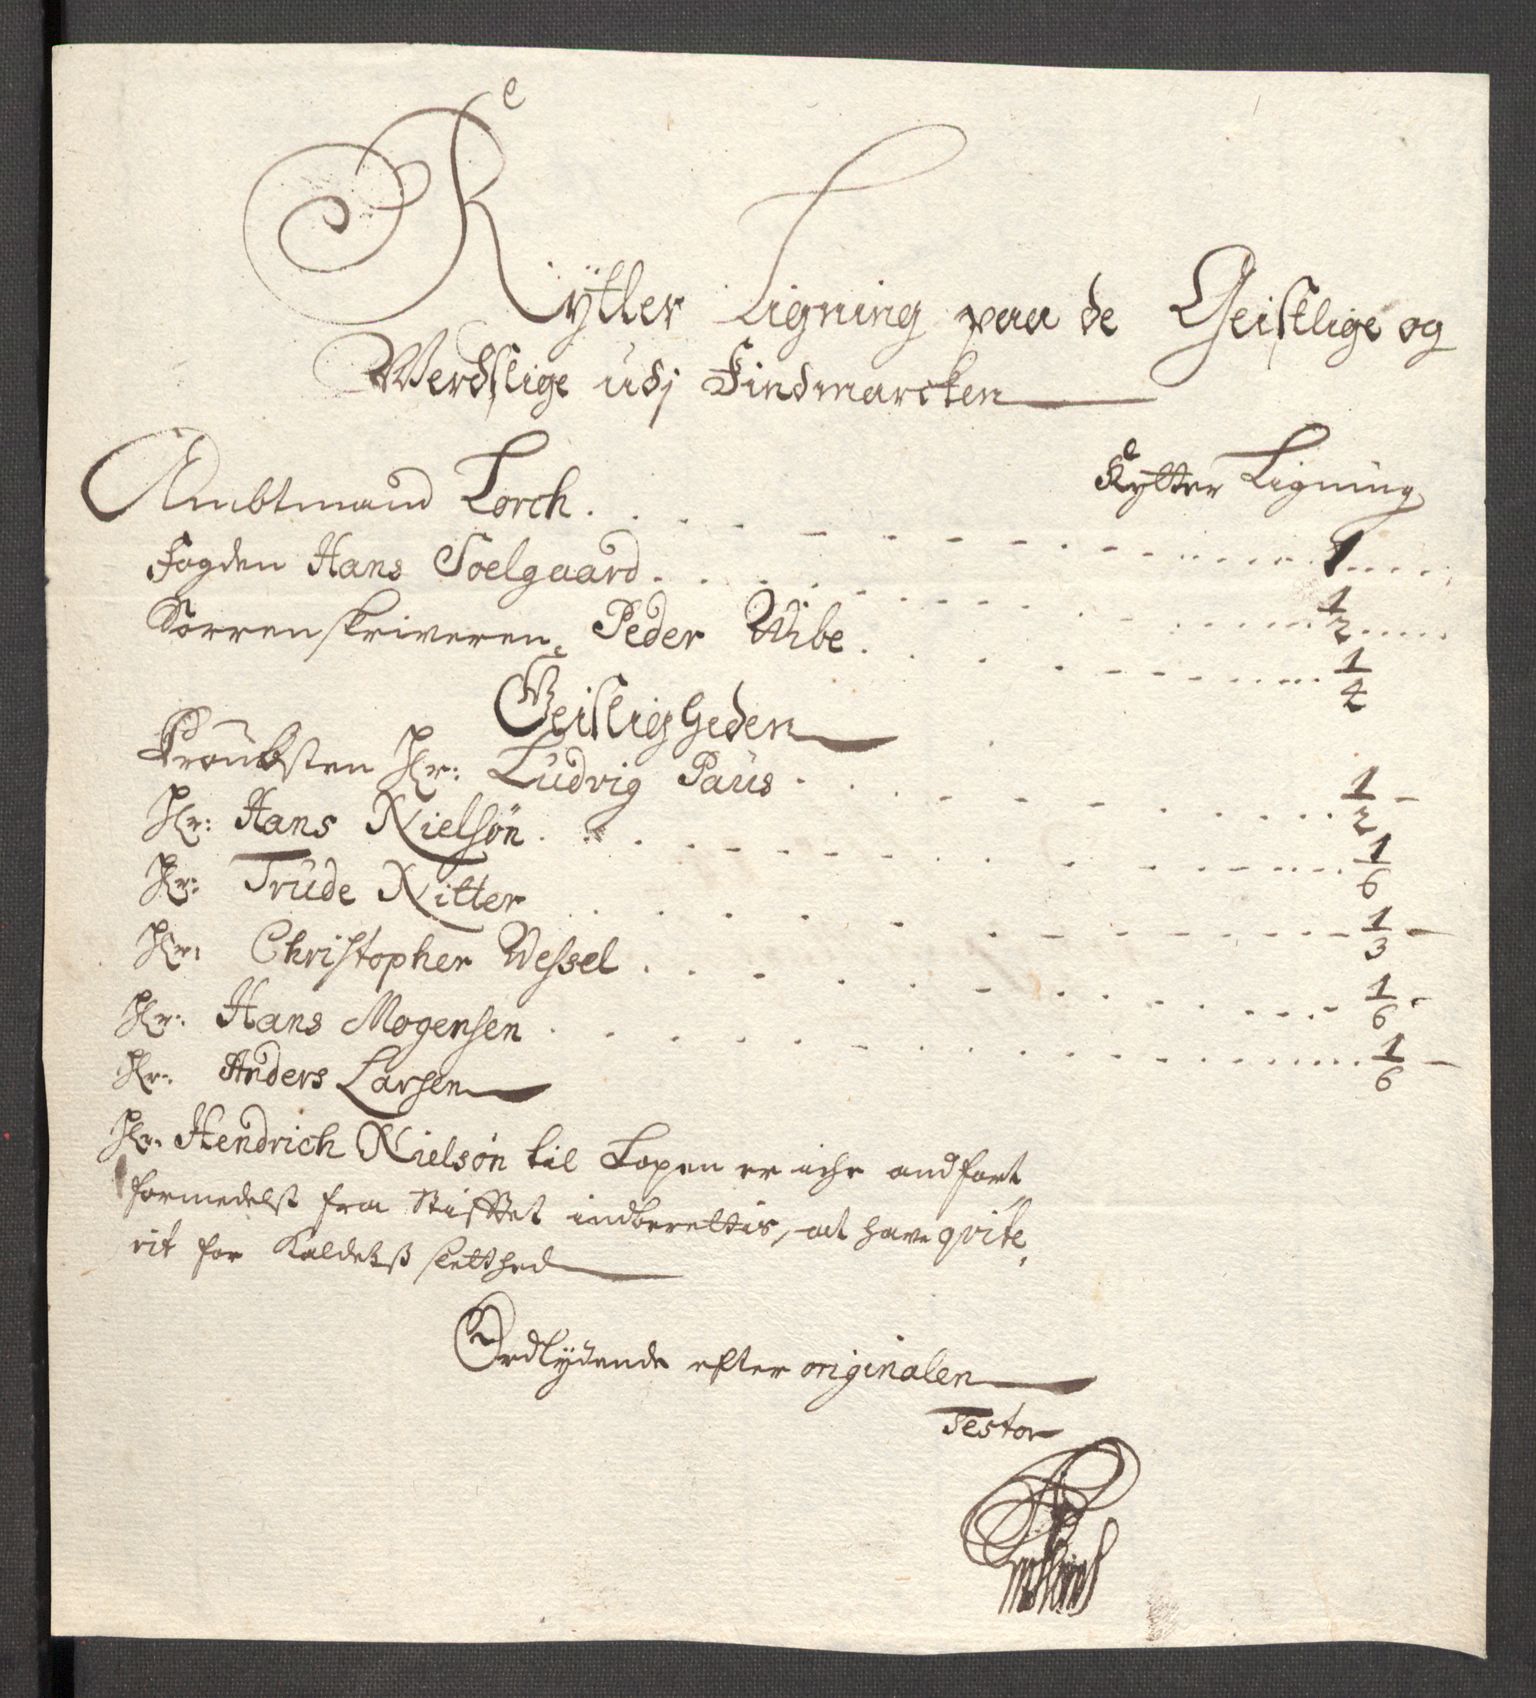 Rÿtter Ligning paa de Geistlige og
Werdslige udj Findmarcken
Rytter Ligning
Ambtmand Lorch 1
Fogden Hans Soelgaard 1/2
Sorrenskriveren Peder Wibe 1/4
Geistligheden
Proubsten Hr: Ludvig Paus 1/2
Hr: Hans Nielsøn 1/6
Hr: Trude Nitter 1/3
Hr: Christopher Wessel 1/6
Hr: Hans Mogensen 1/6
Hr: Anders Larsen
Hr: Hendrich Nielsøn til Loppen er iche andført
formedelst fra Stifftet indberettis, at have qvite,
rit for Kaldets sletthed
Ordlydende efter originalen
Testor